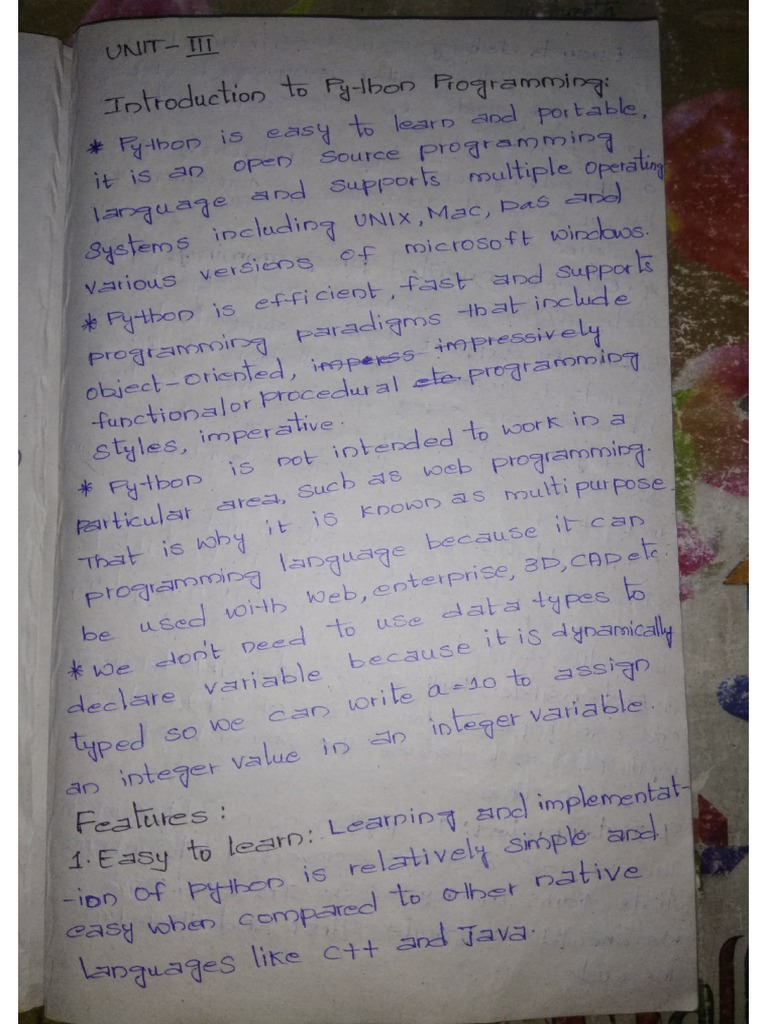 UNIT-III
Introduction to Python Programming:
* Python is easy to learn and portable,
it is an open source programming
language and supports multiple operating
systems including UNIX, Mac, Das and
various versions of microsoft windows.
* Python is efficient, fast and supports
programming paradigms that include
object-oriented, imperss impressively
functional or procedural etc. programming
styles, imperative.
* Python is not intended to work in a
particular area, such as web programming.
That is why it is known as multi purpose
programming language because it can
be used with web, enterprise, 3D, CAD etc.
* we don't need to use data types to
declare variable because it is dynamically
typed so we can write a=10 to assign
an integer value in an integer variable.
Features:
1. Easy to learn: Learning and implementat-
-ion of python is relatively simple and
easy when compared to other native
languages like C++ and Java.